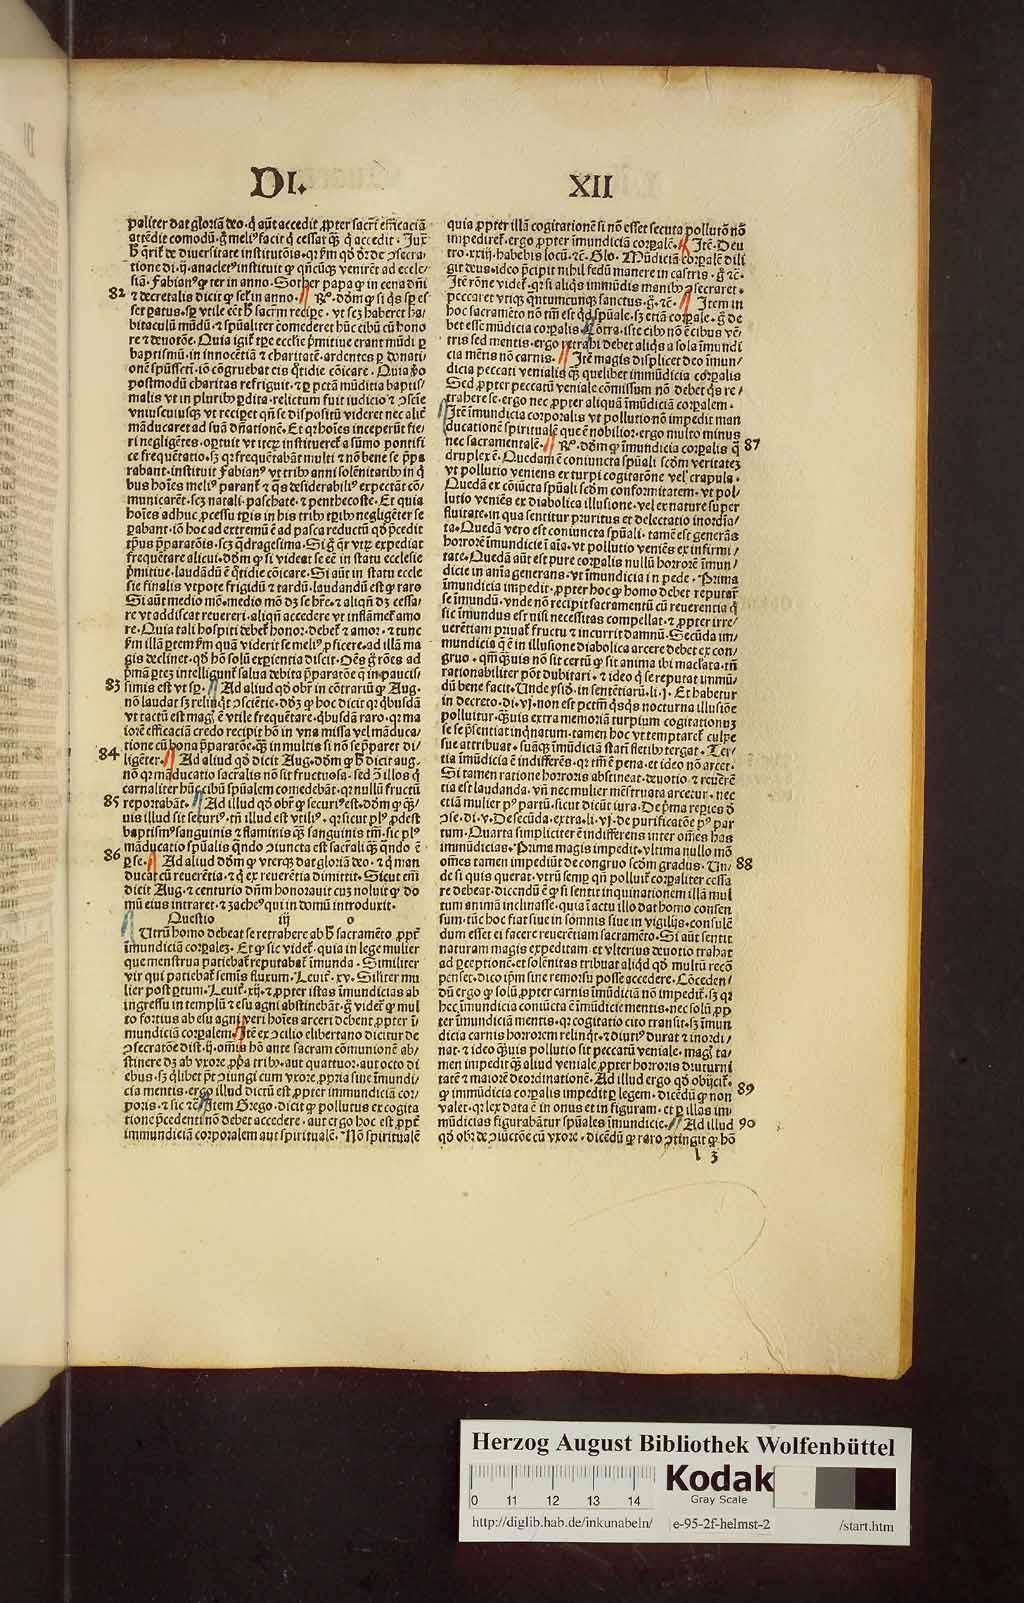 DI.
XII
paliter dat gloriā deo. q̄ aūt accedit ꝓpter sacr̄i efficaciā
attēdit comodū. ḡ meliꝰ facit q̄ cessat qᷓ q̄ accedit. Jux̄
tione di.ij. anacletꝰ instituit ꝙ qn̄cūqꝫ venirēt ad eccle/
siā. Fabianꝰ ꝙ ter in anno. Sother papa ꝙ in cena dn̄i
82
⁊ decretalis dicit ꝙ sel̄ in anno. Rº. dōm ꝙ si qͥs sꝑ es
set ꝑatus. sꝑ vtile eēt h̄ sacrm̄ recipe. vt scꝫ haberet ha/
bitaculū mūdū. ⁊ spūaliter comederet hūc cibū cū hono
re ⁊ deuotōe. Quia igit̄ tꝑe ecclie pͥmitiue erant mūdi ꝑ
baptismū. in innocētia ⁊ charitatē. ardentes ꝑ donati
onē spūssc̄ti. iō cōgruebat eis qͦtidie cōicare. Quia ꝟo
postmodū charitas refriguit. ⁊ ꝑ ꝑtem mūditia baptis/
malis vt in pluribꝰ ꝑdita. relictum fuit iudicio ⁊ ↄscīe
vniuscuiusqꝫ vt reciꝑet qn̄ se dispositū videret nec alit̄
māducaret ad suā dn̄ationē. Et qꝛ hoīes inceperūt fie/
ri negligētes. oportuit vt iteꝝ institueret̄ a sūmo pontifi
ce frequētatio. sꝫ qꝛ frequētabāt multi ⁊ nō bene se p̄pa
rabant. instituit Fabianꝰ vt tribꝰ anni solēnitatibꝰ in q̄
bus hoīes meliꝰ parant̄ ⁊ qͣs desiderabiliꝰ expectāt cō/
municarēt. scꝫ natali. paschate. ⁊ penthecoste. Et quia
hoīes adhuc ꝓcessu tꝑis in his tribꝰ tꝑibꝰ negligēter se
ꝑabant. iō hoc ad extremū ē ad pasca reductū qd̄ p̄cedit
tp̄us p̄paratōis. scꝫ qͣdragesima. Si ḡ qr̄ vtꝝ expediat
frequētare alicui. dōm ꝙ si videat se eē in statu ecclesie
pͥmitiue. laudādū ē qͦtidie cōicare. Si aūt in statu eccle
sie finalis vtpote frigidū ⁊ tardū. laudandū est ꝙ raro
Si aūt medio mō. medio mō dꝫ se hr̄e. ⁊ aliqn̄ dꝫ cessa/
re vt addiscat reuereri. aliqn̄ accedere vt inflāmet̄ amo
re. Quia tali hospiti debet̄ honor. debet̄ ⁊ amor. ⁊ tunc
fm̄ illā ꝑtem fm̄ quā viderit se meliꝰ ꝓficere. ad illā ma
gis declinet. qd̄ hō solū exꝑientia discit. Oēs ḡ rōes ad
pͥmā ꝑteꝫ intelligunt̄ salua debita p̄paratōe q̄ in paucis/
83
simis est vt sꝑ. Ad aliud qd̄ obr̄ in cōtrariū ꝙ Aug.
iorē efficaciā credo recipit hō in vna missa vel māduca/
tione cū bona p̄paratōe. qᷓ in multis si nō se p̄paret di/
84
ligēter. Ad aliud qd̄ dicit Aug. dōm ꝙ h̄ dicit aug.
nō qꝛ māducatio sacr̄alis nō sit fructuosa. sed ꝓ illos q̄
carnaliter hūc cibū spūalem comedebāt. qꝛ nullū fructū
85
reportabāt. Ad illud qd̄ obr̄ ꝙ securiꝰ est. dōm ꝙ qᷓ/
uis illud sit securiꝰ. tn̄ illud est vtiliꝰ. qꝛ sicut plꝰ ꝓdest
baptismꝰ sanguinis ⁊ flaminis qᷓ sanguinis tm̄. sic plꝰ
māducatio spūalis qn̄do ↄiuncta est sacr̄ali qᷓ qn̄do ē
86
ꝑ se. Ad aliud dōm ꝙ vterqꝫ dat gloriā deo. ⁊ q̄ man
ducat cū reuerētia. ⁊ q̄ ex reuerētia dimittit. Sicut em̄
dicit Aug. ⁊ centurio dn̄m honorauit cuꝫ noluit ꝙ do
mū eius intraret. ⁊ zacheꝰ qui in domū introduxit.
Questio iij o
Utrū homo debeat se retrahere ab h̄ sacramēto ꝓpt̄
īmundiciā corꝑaleꝫ. Et ꝙ sic videt̄. quia in lege mulier
que menstrua patiebat̄ reputabat̄ īmunda. Similiter
vir qui patiebat̄ semīs fluxum. Leuit̄. xv. Siliter mu
lier post ꝑtum. Leuit̄. xij. ⁊ ꝓpter istas īmundicias ab
ingressu in templū ⁊ esu agni abstinebāt. ḡ videt̄ ꝙ mul
to fortius ab esu agni veri hoīes arceri debent ꝓpter ī
mundiciā corꝑalem. Itē ex ↄcilio elibertano dicitur de
ↄsecratōe dist. ij. omīs hō ante sacram cōmunionē ab/
stinere dꝫ ab vxore ꝓp̄a tribꝰ. aut quattuor. aut octo di
ebus. sꝫ qͥlibet pōt ↄiungi cum vxore ꝓpria sine īmundi/
cia mentis. ergo illud dictū est ꝓpter immundiciā cor/
poris. ⁊ sic ⁊c̄. Item Grego. dicit ꝙ pollutus ex cogita
tione p̄cedenti nō debet accedere. aut ergo hoc est ꝓpt̄
immundiciā corporalem aut spiritualē. Nō spiritualē
quia ꝓpter illā cogitationē si nō esset secuta pollutō nō
impediret̄. ergo ꝓpter īmundiciā corꝑalē. Itē. Deu
tro. xxiij. habebis locū. ⁊c̄. Glo. Mūdiciā corꝑalē dili
git deus. ideo p̄cipit nihil fedū manere in castris. ḡ ⁊c̄.
Itē rōne videt̄. qꝛ si aliqͥs immūdis manibꝰ ↄsecraret.
peccaret vtiqꝫ qn̄tumcunqꝫ sanctus. ḡ. ⁊c̄. Item in
hoc sacramēto nō tm̄ est qd̄ spūale. sꝫ etiā corꝑale. ḡ de
bet esse mūdicia corꝑalis. Cōtra. iste cibꝰ nō ē cibus vē
tris sed mentis. ergo retrahi debet aliqͥs a sola īmundi
cia mētis nō carnis. Itē magis displicet deo īmun/
dicia peccati venialis qᷓ quelibet immūdicia corꝑalis
Sed ꝓpter peccatū veniale cōmissum nō debet qͥs re/
trahere se. ergo nec ꝓpter aliquā īmudiciā corꝑalem.
Itē īmundicia corporalis vt pollutio nō impedit man
ducationē spiritualē que ē nobilior. ergo multo minus
nec sacramentalē. Rº. dōm ꝙ īmundicia corꝑalis q̄
87
druplex ē. Quedam ē coniuncta spūali scd̄m veritateꝫ
vt pollutio veniens ex turpi cogitatōne vel crapula.
Quedā ex cōiūcta spūali scd̄m conformitatem. vt pol/
lutio veniēs ex diabolica illusione. vel ex nature super
fluitate. in qua sentitur pruritus et delectatio inordīa/
ta. Quedā vero est coniuncta spūali. tamē est generās
horrorē īmundicie ī aīa. vt pollutio veniēs ex infirmi/
tate. Quedā aūt est pure corꝑalis nullū horrorē īmun/
dicie in anīa generans. vt īmundicia in pede. Prima
īmundicia impedit. ꝓpter hoc ꝙ homo debet reputar̄
se īmundū. vnde nō recipit sacramentū cū reuerentia q̄
sic īmundus est nisi necessitas compellat. ⁊ ꝓpter irre/
uerētiam priuat̄ fructu ⁊ incurrit damnū. Secūda im/
mundicia q̄ ē in illusione diabolica arcere debet ex con/
gruo. qm̄ qᷓuis nō sit certū ꝙ sit anima ibi maclata. tn̄
rationabiliter pōt dubitari. ⁊ ideo q̄ se reputat immū/
dū bene facit. Unde ysid. in sentētiarū. li. j. Et habetur
in decreto. di. vj. non est pctm̄ qͥsqͥs nocturna illusiōe
polluitur. qᷓuis extra memoriā turpium cogitationuꝫ
se se p̄sentiat inqͥnatum. tamen hoc vt temptaret̄ culpe
sue attribuat. suāqꝫ īmūdiciā stati fletibꝰ tergat. Ter/
tia īmūdicia ē indifferēs. qꝛ tm̄ ē pena. et ideo nō arcet.
Si tamen ratione horroris abstineat. deuotio ⁊ reuerē
tia est laudanda. vn̄ nec mulier mēstruata arcetur. nec
etiā mulier pꝰ partū. sicut dicūt iura. De pͥma reꝑies ō
ↄse. di. v. De secūda. extra. li. vj. de purificatōe pꝰ par
tum. Quarta simpliciter ē indifferens inter om̄es has
immūdicias. Prima magis impedit. vltima nullo mō
om̄es tamen impediūt de congruo scd̄m gradus. Un/
88
de si quis querat. vtrū semꝑ qn̄ polluit̄ corꝑaliter cessa
re debeat. dicendū ē ꝙ si sentit inquinationem illā mul
tum animā inclinasse. quia ī actu illo dat homo consen
sum. tūc hoc fiat siue in somnis siue in vigilijs. consulē
dum esset ei facere reuerētiam sacramēto. Si aūt sentit
naturam magis expeditam. et vlterius deuotio trahat
ad ꝑceptionē. et solēnitas tribuat aliqͥd qd̄ multū recō
penset. dico ip̄m sine remorsu posse accedere. Cōceden/
dū ergo ꝙ solū ꝓpter carnis īmūdiciā nō impedit̄. sꝫ qꝛ
hec īmundicia coniuncta ē īmūdicie mentis. nec solū ꝓp
ter īmundiciā mentis. qꝛ cogitatio cito transit. sꝫ īmun
dicia carnis horrorem relinqͥt. ⁊ diutiꝰ durat ⁊ inordi/
nat. ⁊ ideo qᷓuis pollutio sit peccatū veniale. magꝭ ta/
men impedit qᷓ aliud veniale ꝓpter horroris diuturni
tatē ⁊ maiorē deordinationē. Ad illud ergo qd̄ obijcit̄.
89
ꝙ immūdicia corꝑalis impedit ꝑ legem. dicēdū ꝙ non
valet. qꝛ lex data ē in onus et in figuram. et ꝑ illas im/
mūdicias figurabātur spūales īmundicie. Ad illud
90
qd̄ obr̄ de ↄiuctōe cū vxore. dicēdū ꝙ raro ↄtingit ꝙ hō
l 3
Herzog August Bibliothek Wolfenbüttel
0 11 12 13 14
Kodak
Gray Scale
http://diglib.hab.de/inkunabeln/ e-95-2f-helmst-2 /start.htm